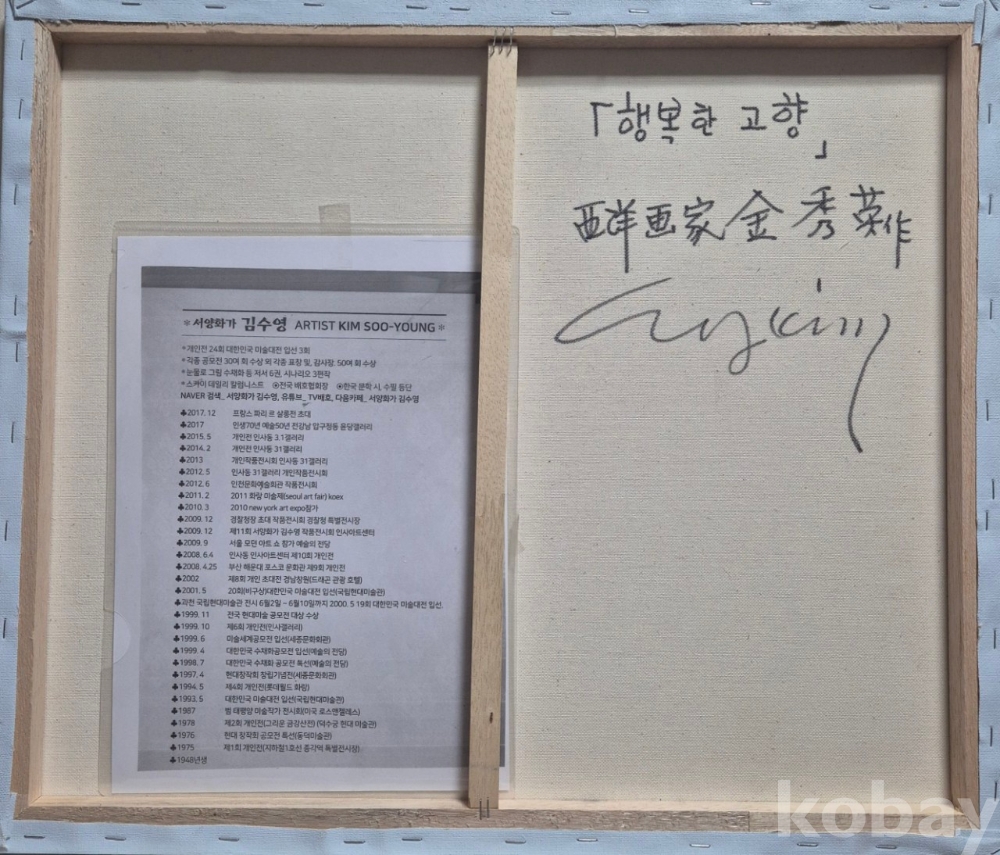 「행복한 고향」
西洋画家 金秀荣作
Kim
* 서양화가 김수영 ARTIST KIM SOO-YOUNG *
* 개인전 24회 대한민국 미술대전 입선 3회
* 각종 공모전 30여 회 수상 외 각종 표창 및, 감사장. 50여 회 수상
* 눈물로 그림 수채화 등 저서 6권, 시나리오 3편작
* 스카이 데일리 칼럼니스트 ⊙전국 배호협회장 ⊙한국 문학 시, 수필 등단
NAVER 검색_ 서양화가 김수영, 유튜브_ TV배호, 다음카페_ 서양화가 김수영
♣2017. 12 프랑스 파리 르 살롱전 초대
♣2017 인생70년 예술50년 전강남 압구정동 윤당갤러리
♣2015. 5 개인전 인사동 3.1갤러리
♣2014. 2 개인전 인사동 31갤러리
♣2013 개인작품전시회 인사동 31갤러리
♣2012. 5 인사동 31갤러리 개인작품전시회
♣2012. 6 인천문화예술회관 작품전시회
♣2011. 2 2011 화랑 미술제(seoul art fair) koex
♣2010. 3 2010 new york art expo참가
♣2009. 12 경찰청장 초대 작품전시회 경찰청 특별전시장
♣2009. 12 제11회 서양화가 김수영 작품전시회 인사아트센터
♣2009. 9 서울 모던 아트 쇼 참가 예술의 전당
♣2008. 6.4 인사동 인사아트센터 제10회 개인전
♣2008. 4.25 부산 해운대 포스코 문화관 제9회 개인전
♣2002 제8회 개인 초대전 경남창원(드래곤 관광 호텔)
♣2001. 5 20회(비구상)대한민국 미술대전 입선(국립현대미술관)
♣과천 국립현대미술관 전시 6월2일 ~ 6월10일까지 2000. 5 19회 대한민국 미술대전 입선.
♣1999. 11 전국 현대미술 공모전 대상 수상
♣1999. 10 제6회 개인전(인사갤러리)
♣1999. 6 미술세계공모전 입선(세종문화회관)
♣1999. 4 대한민국 수채화공모전 입선(예술의 전당)
♣1998. 7 대한민국 수채화 공모전 특선(예술의 전당)
♣1997. 4 현대창작회 창립기념전(세종문화회관)
♣1994. 5 제4회 개인전(롯데월드 화랑)
♣1993. 5 대한민국 미술대전 입선(국립현대미술관)
♣1987 범 태평양 미술작가 전시회(미국 로스앤젤레스)
♣1978 제2회 개인전(그리운 금강산전) (덕수궁 현대 미술관)
♣1976 현대 창작회 공모전 특선(동덕미술관)
♣1975 제1회 개인전(지하철1호선 종각역 특별전시장).
♣1948년생
kobay